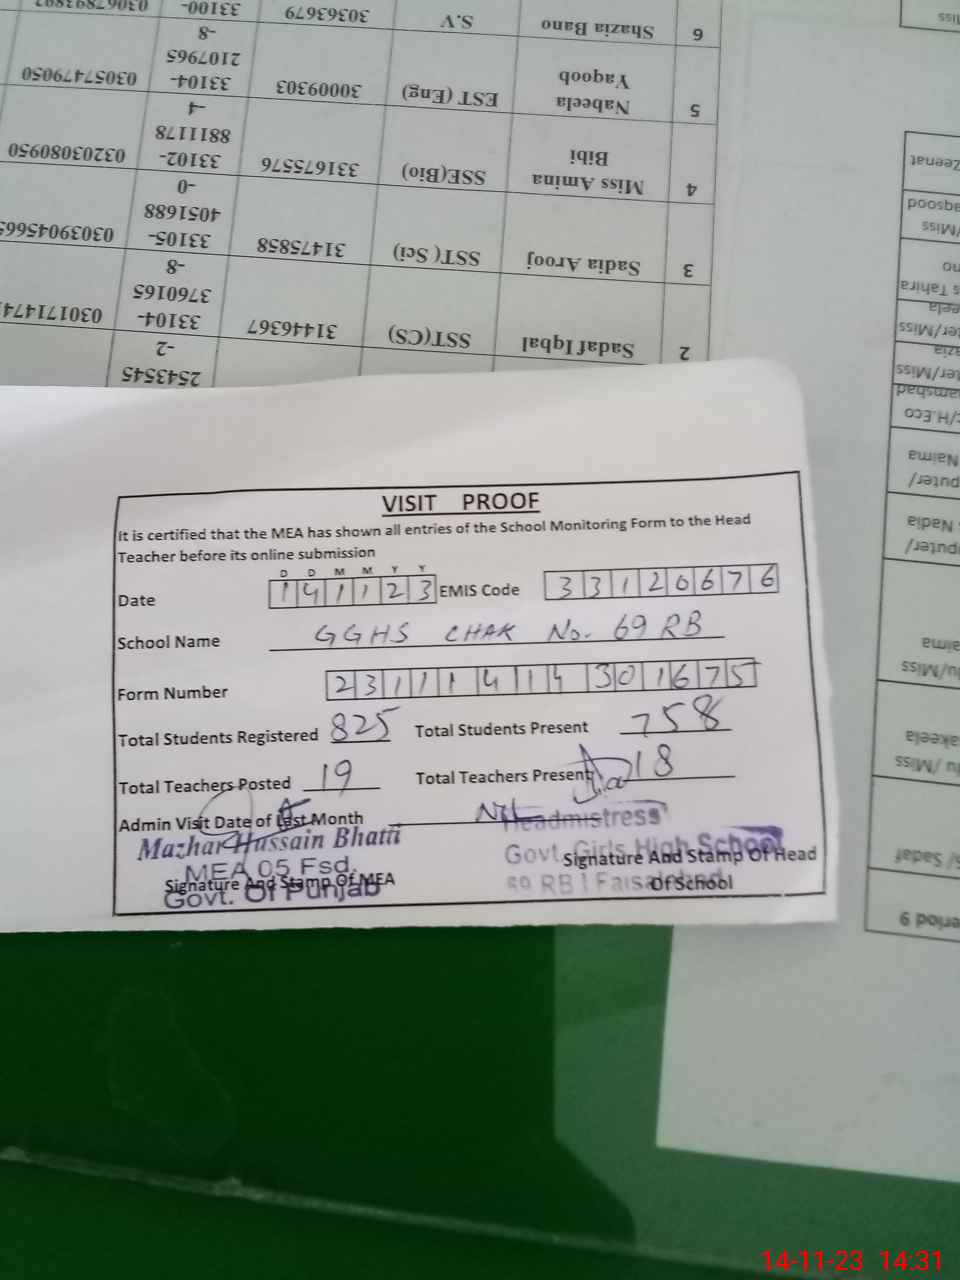 6 Shazia Bano S.V 30363679 33100-
5 Nabeela Yaqoob EST (Eng) 30009303 33104-2107965-8 03057479050
4 Miss Amina Bibi SSE(Bio) 331675576 33102-8811178-4 03203080950
3 Sadia Arooj SST( Sci) 31475858 33105-4051688-0
2 Sadaf Iqbal SST(CS) 31446367 33104-3760165-8
2543545
-2
VISIT PROOF
It is certified that the MEA has shown all entries of the School Monitoring Form to the Head
Teacher before its online submission
D D M M Y Y
Date 1 4 1 1 2 3 EMIS Code 3 3 1 2 0 6 7 6
School Name GGHS CHAK No. 69 RB
Form Number 2 3 1 1 1 4 1 4 3 0 1 6 7 5
Total Students Registered 825 Total Students Present 758
Total Teachers Posted 19 Total Teachers Present 18
Admin Visit Date of Last Month Nil
Mazhar Hussain Bhatti
MEA 05 Fsd.
Govt. Of Punjab
Signature And Stamp Of MEA
Headmistress
Govt. Girls High School
69 RB Faisalabad
Signature And Stamp Of Head
Of School
Zeenat
Tahira
Naima
Nadia
Sadaf
14-11-23 14:31